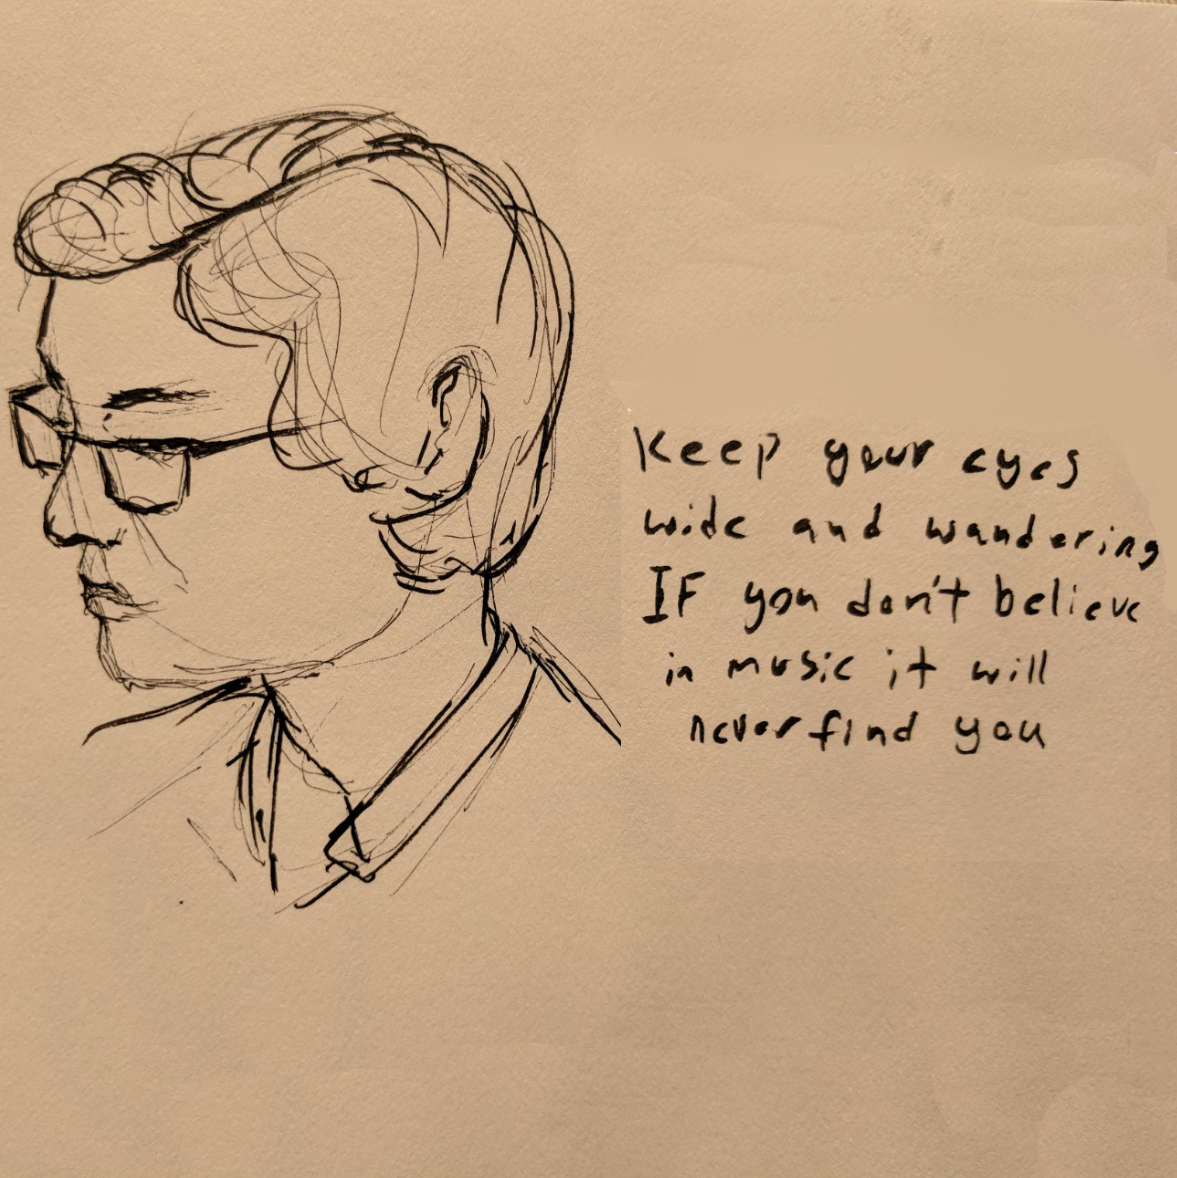 Keep your eyes
wide and wandering
IF you don't believe
in music it will
never find you